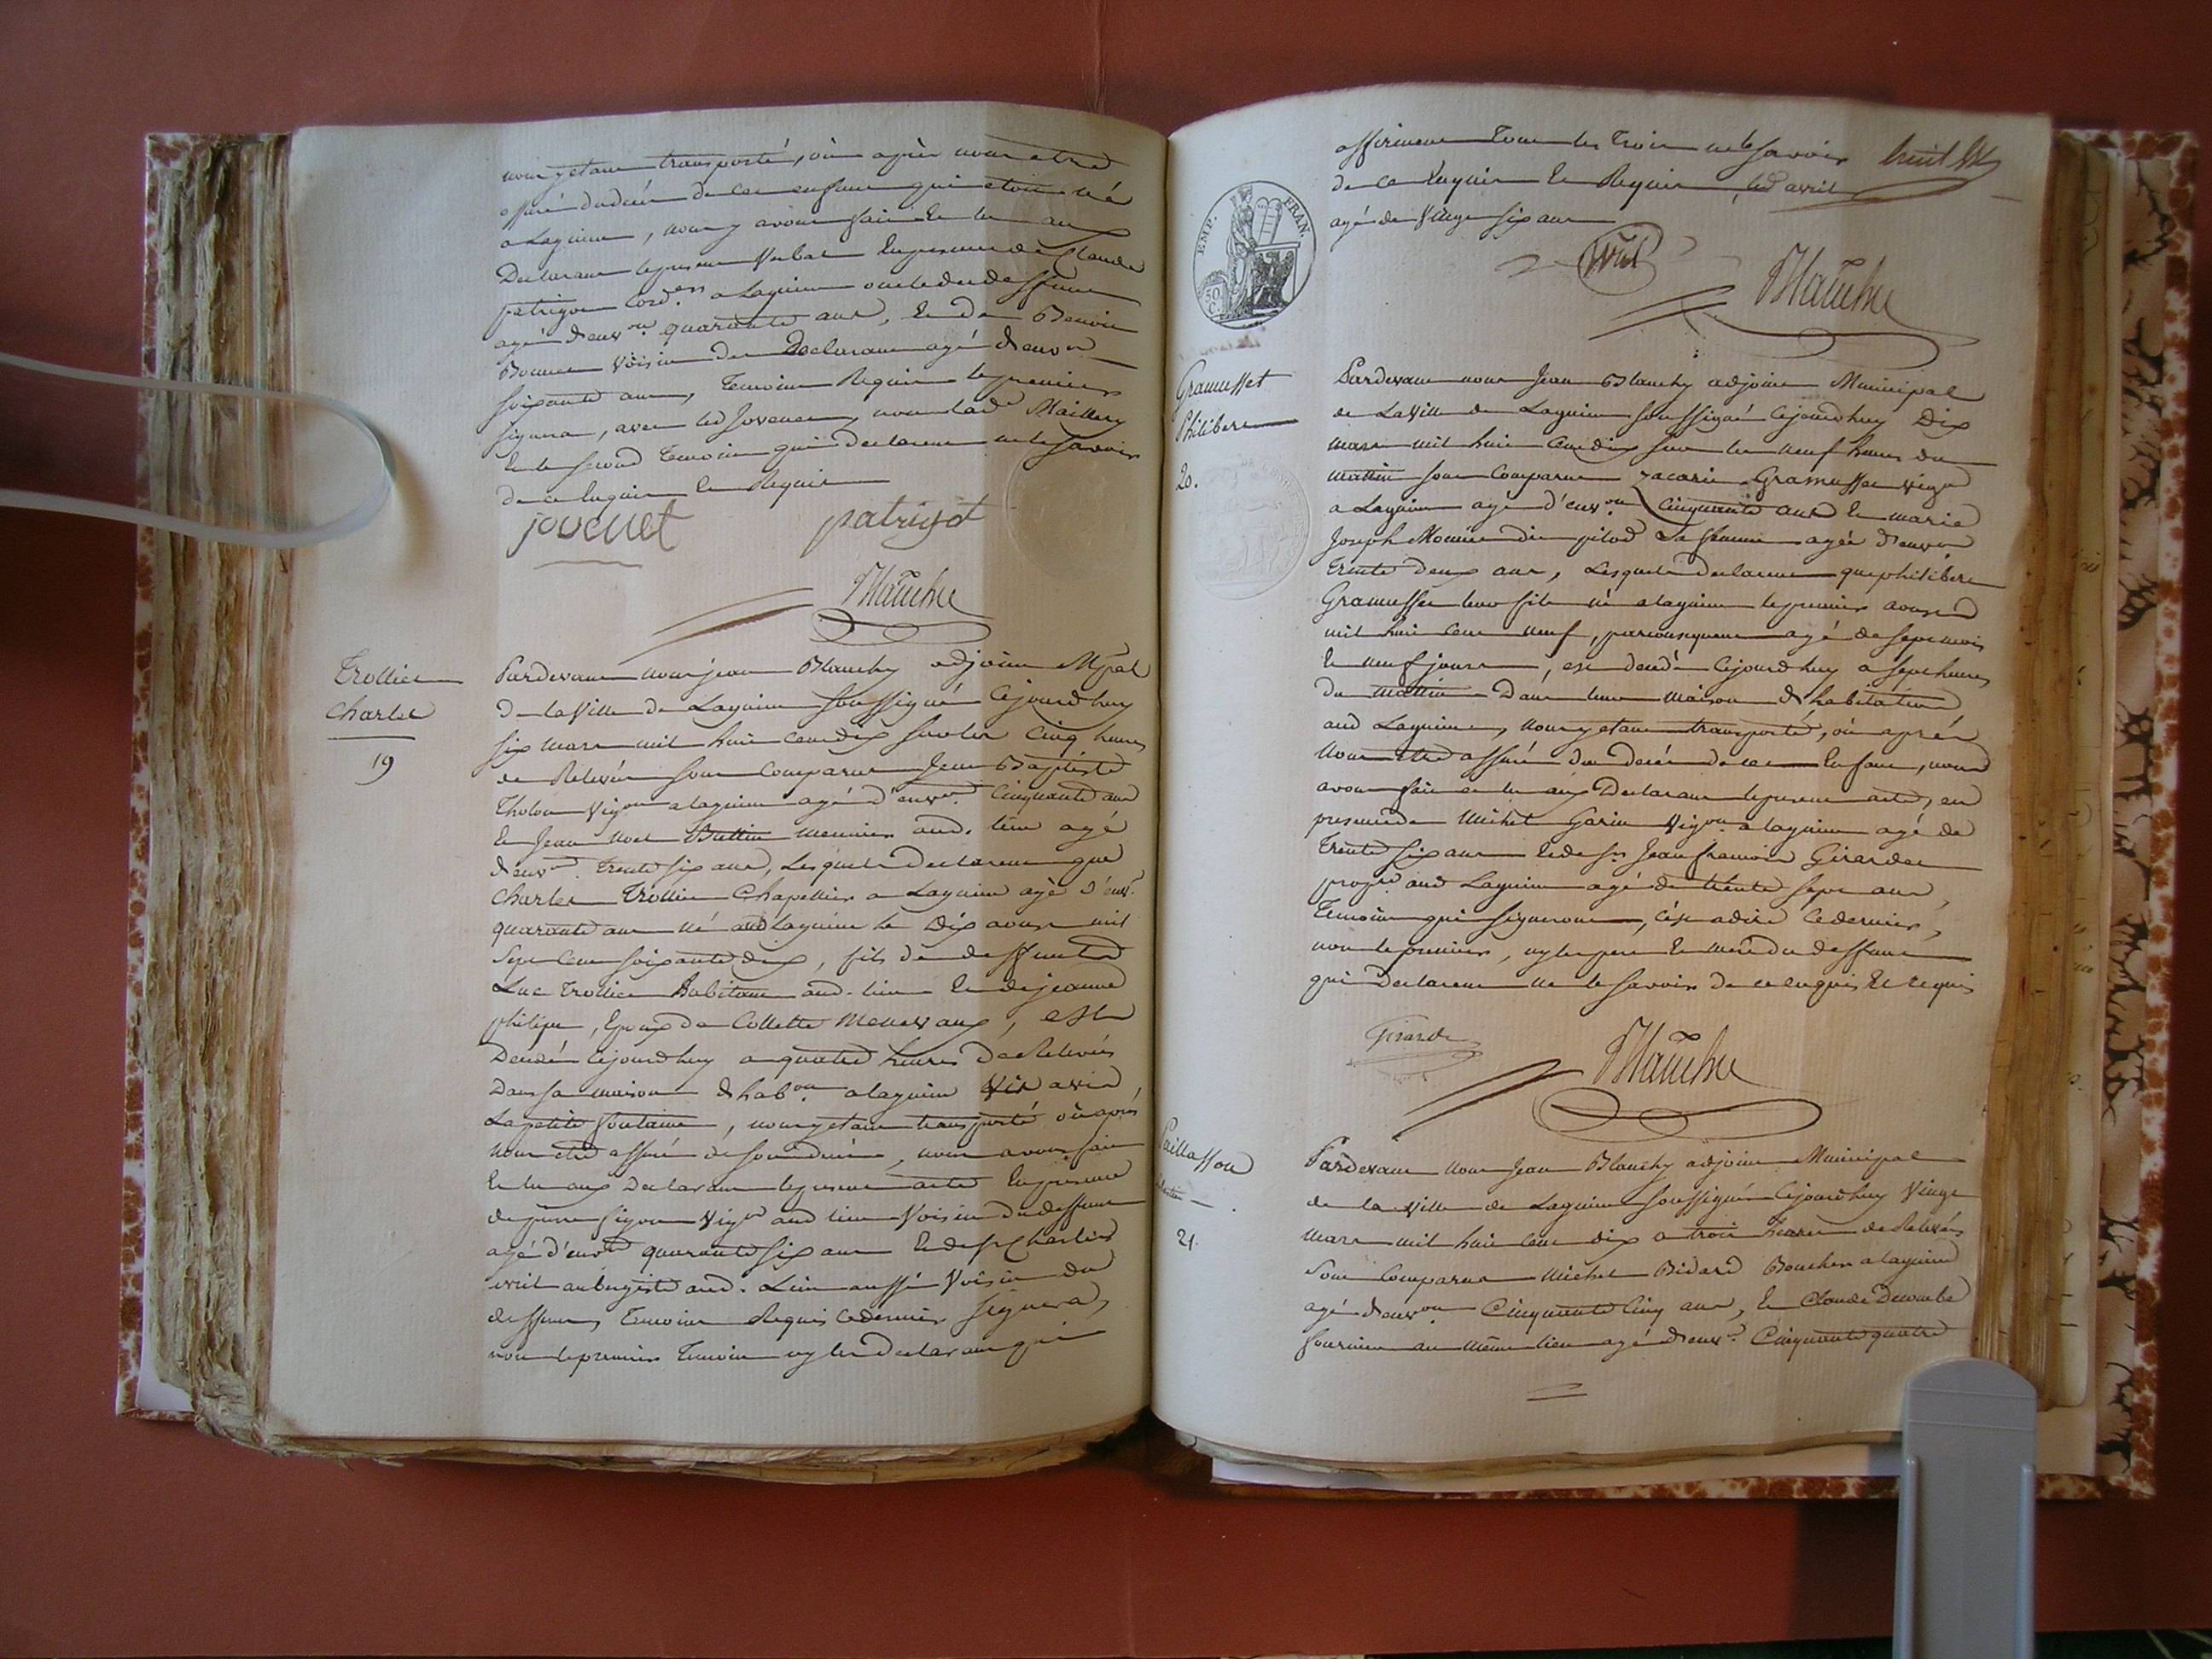 nous y etant transporté, où après nous etre
assuré du decés de cet enfant qui etoit né
a Lagnieu, nous y avons fait et lu aux
Declarans le present Verbal En presence de Claude
patrigot Cord.er a Lagnieu oncle du deffunt
agé d'env.on quarante ans, et de Benoit
Bonnet Voisin des Declarans agé d'env.on
soixante ans, Temoins Requis le premier
signera, avec led Jovenet, non lad.e Maillery
Et le second Temoin qui Declarent ne le savoir
de ce Enquis Et Requis
jouenet patrigot
Blanchy
Trollier
Charles
19
Pardevant nous jean Blanchy adjoint M.pal
de la Ville de Lagnieu soussigné Cejourd'huy
six mars mil huit cent dix sur les Cinq heures
de Relevée sont Comparus Jean Baptiste
Tholon Vig.on a lagnieu agé d'env.on Cinquante ans
Et Jean Noel Buttin meunier aud. lieu agé
d'env.on Trente six ans, Lesquels Declarent que
Charles Trollier Chapellier a Lagnieu agé d'env.on
quarante ans né aud Lagnieu le Dix aoust mil
Sept Cent soixante dix, fils de deffunt
Luc Trollier habitant aud. lieu Et de jeanne
philipe, Epoux de Collette , est
Decedé Cejourd'huy a quatre heures de Relevée
Dans sa maison d'hab.on a lagnieu Vis avis
La petite fontaine, nous y etant transporté où après
Nous etre assuré de son decés, nous avons fait
Et lu aux Declarans le present acte En presence
de pierre Vig.on aud lieu Voisin du deffunt
agé d'env.on quarante six ans Et de s.r Charles
aubergiste aud. Lieu aussi Voisin du
deffunt, Temoins Requis ce dernier signera,
non le premier Temoin ny les Declarans qui
affirment Tous les Trois ne le savoir
de ce Enquis Et Requis
agé de Vingt six ans
Blanchy
EMP. FRAN.
50 C.
Gramusset
Philibert
20.
Pardevant nous Jean Blanchy adjoint Municipal
de La Ville de Lagnieu soussigné Cejourd'huy Dix
mars mil huit Cent dix sur les neuf heures du
mattin sont Comparus Zacarie Gramusset vig.on
a Lagnieu agé d'env.on Cinquante ans Et marie
Joseph Monnier dit pilod sa femme agée d'env.on
Trente Deux ans, Lesquels Declarent que philibert
Gramusset leur fils né a lagnieu le premier aoust
mil huit Cent neuf, par consequent agé de sept mois
Et neuf jours, est decedé Cejourd'huy a sept heures
du mattin Dans leur maison d'habitation
aud Lagnieu, nous y etant transporté, où aprés
Nous Etre assuré du decés de cet Enfant, nous
avons fait et lu aux Declarans le present acte, en
presence de Michel Garin Vig.on a lagnieu agé de
Trente six ans Et de S.r Jean francois Girardet
prop.re aud Lagnieu agé de trente sept ans,
Temoins qui signeront, c'est a dire Ce dernier,
non le premier, ny les pere Et mere du deffunt
qui Declarent ne le savoir de ce enquis Et requis
Girardet
Blanchy
Paillasson
21.
Pardevant nous Jean Blanchy adjoint Municipal
de la Ville de Lagnieu soussigné Cejourd'huy Vingt
mars mil huit Cent dix a trois heures de Relevée
Sont Comparus Michel Bidard Boucher a lagnieu
agé d'env.on Cinquante Cinq ans, Et Claude Decombe
fournier au même lieu agé d'env.on Cinquante quatre